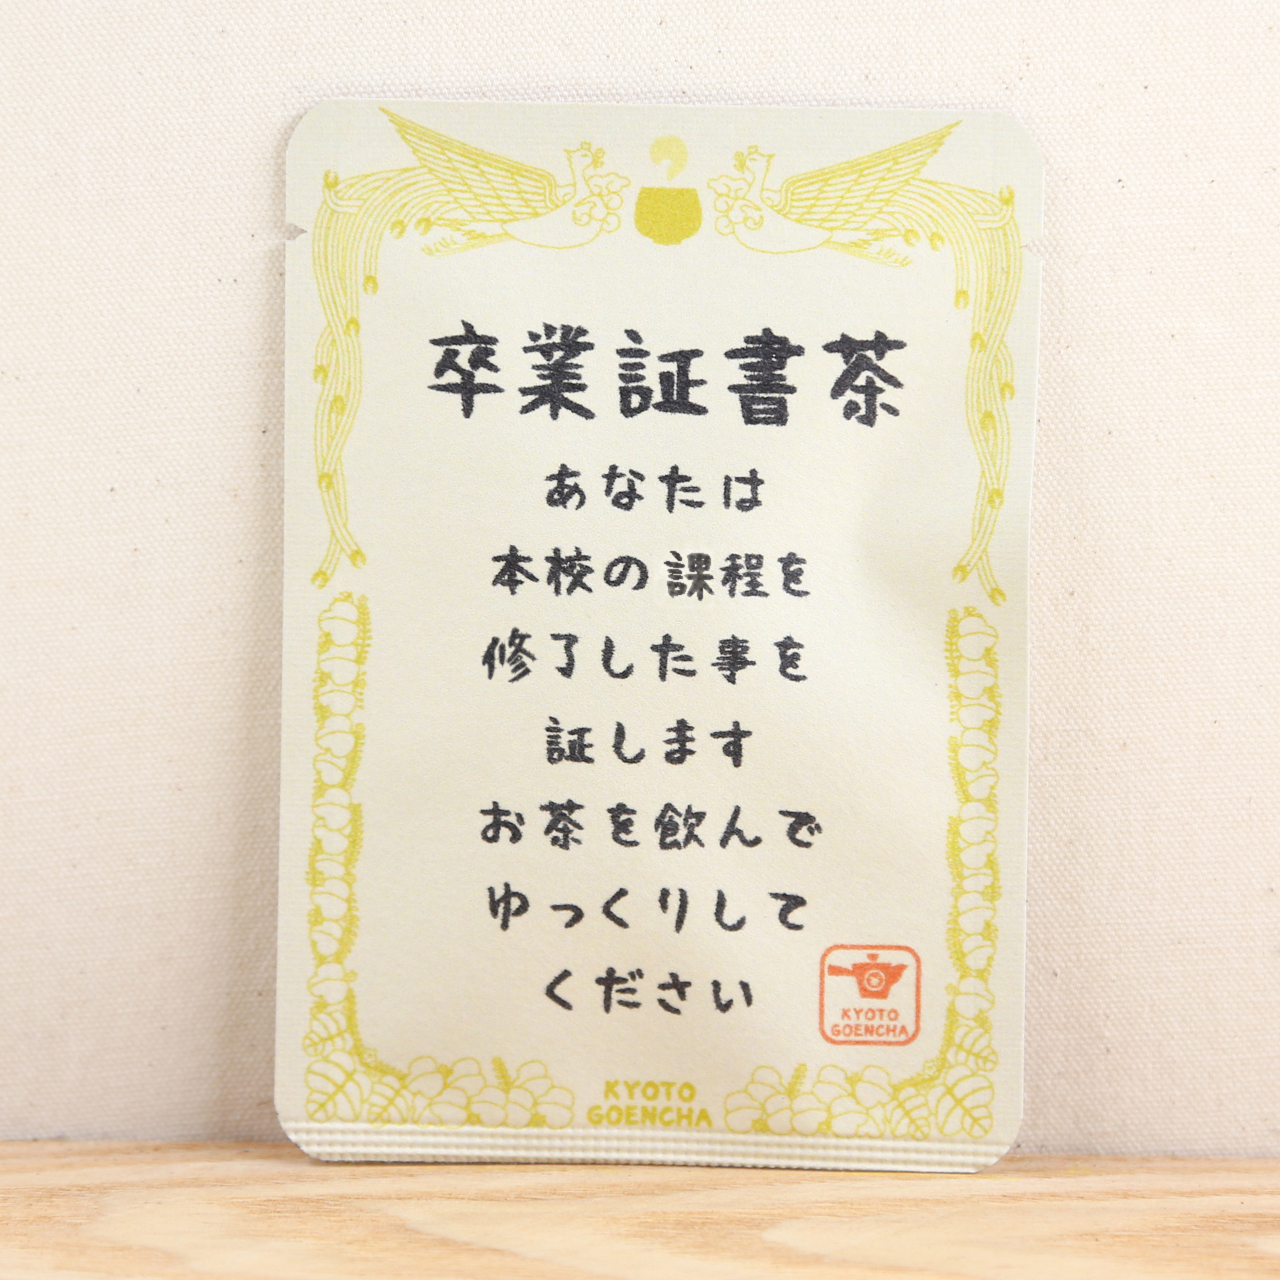 卒業証書茶
あなたは
本校の課程を
修了した事を
証します
お茶を飲んで
ゆっくりして
ください
KYOTO
GOENCHA
KYOTO
GOENCHA